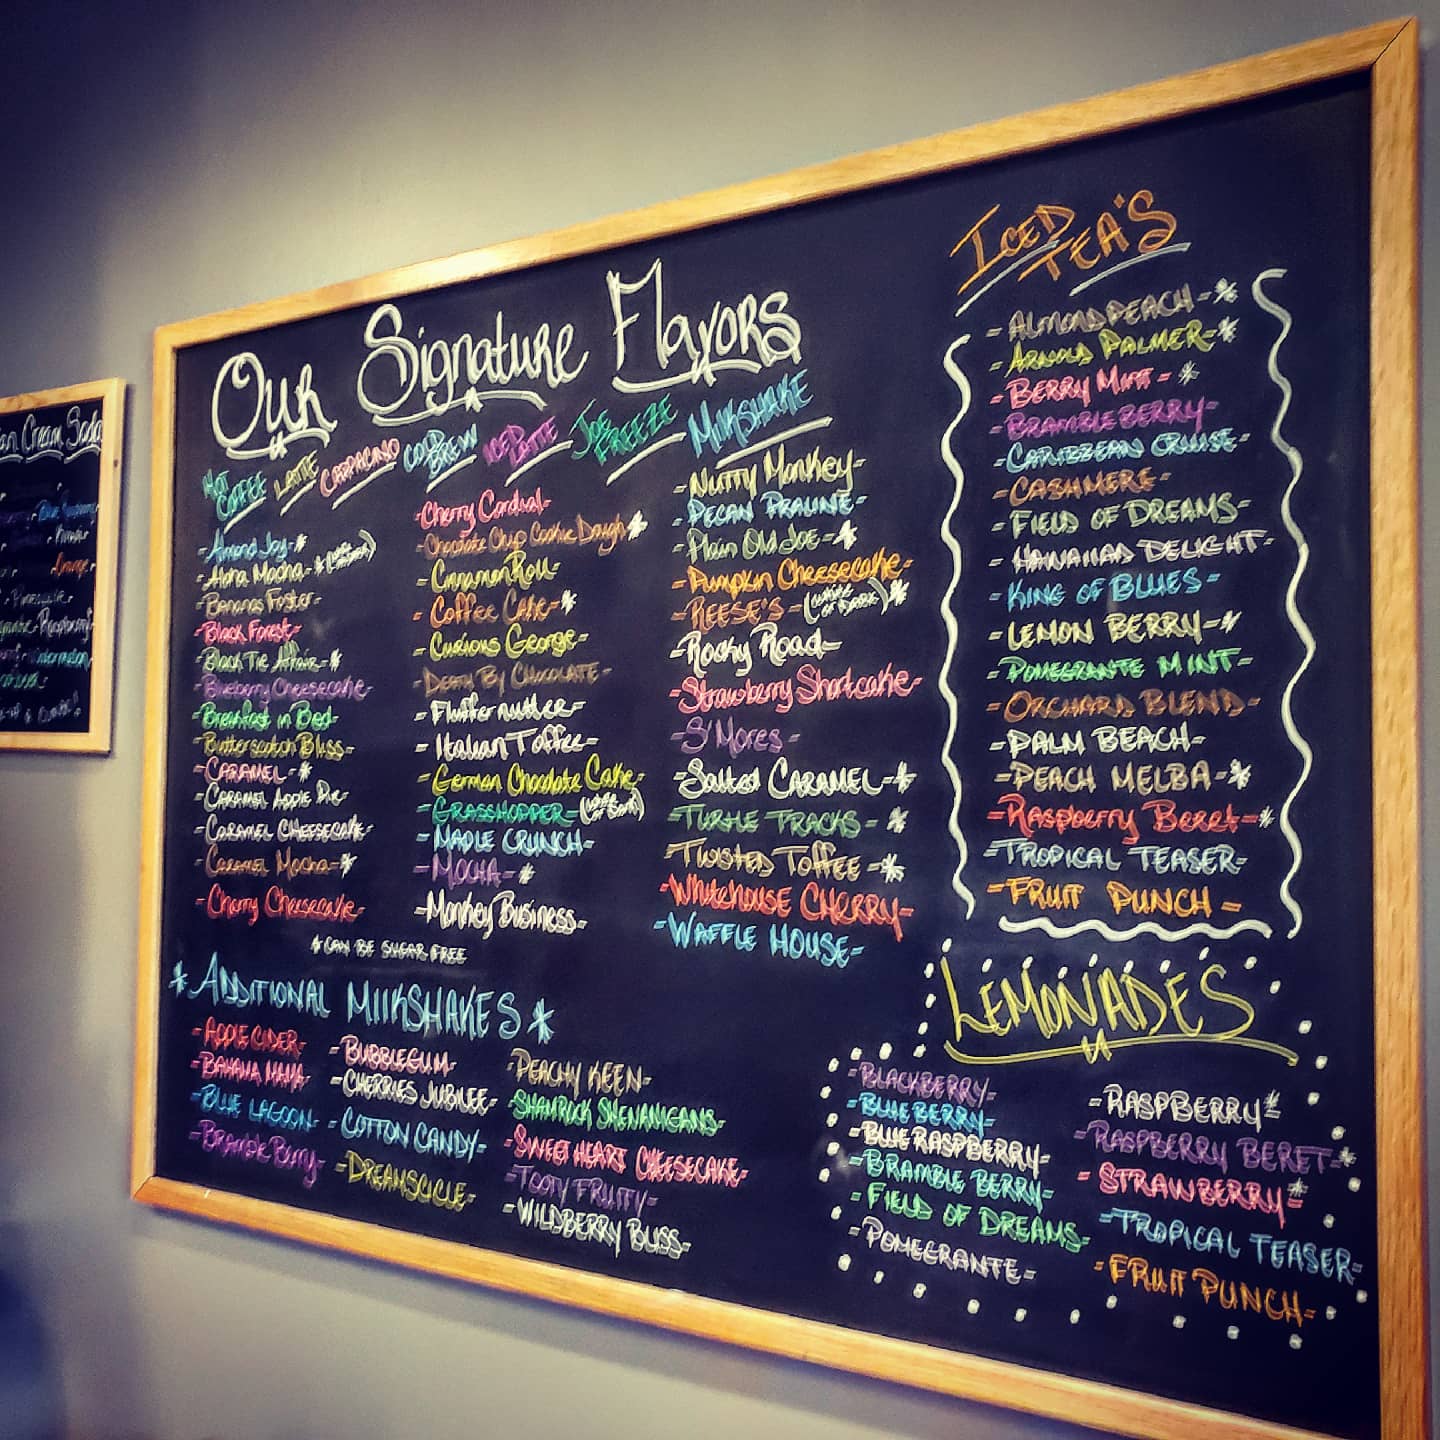 Our Signature Flavors
HOT COFFEE LATTE CAPPACINO COLD BREW JOE FREEZE MILKSHAKE
-Almond Joy-*
-Aloha Mocha-*
-Bananas Foster-
-Black Forest-
-Black Tie Affair-*
-Blueberry Cheesecake-
-Breakfast in Bed-
-Butterscotch Bliss-
-CARAMEL-*
-CARAMEL APPLE Pie-
-CARAMEL CHEESECAKE-
-Caramel Mocha-*
-Cherry Cheesecake-
-Cherry Cordial-
-Chocolate Chip Cookie Dough*
-Cinnamon Roll-
-Coffee Cake-*
-Curious George-
-Death By CHOCOLATE-
-Fluffer nutter-
-Italian Toffee-
-German Chocolate Cake-
-GRASSHOPPER-
-MAPLE CRUNCH-
-MOCHA-*
-Monkey Business-
-Nutty Monkey-
-PECAN PRALINE-
-Plain Old Joe-*
-Pumpkin Cheesecake-
-REESE'S-(WHITE OR DARK)*
-Rocky Road-
-Strawberry Shortcake-
-S'Mores-
-Salted CARAMEL-*
-TURTLE TRACKS-*
-TWISTED Toffee-*
-WhiteHOUSE CHERRY-
-WAFFLE HOUSE-
* CAN BE SUGAR FREE
*ADDITIONAL MILKSHAKES*
-APPLE CIDER-
-BAHAMA MAMA-
-BLUE LAGOON-
-Bramble Berry-
-BUBBLEGUM-
-CHERRIES JUBILEE-
-COTTON CANDY-
-DREAMSCICLE-
-PEACHY KEEN-
-SHAMROCK SHENANIGANS-
-SWEET HEART CHEESECAKE-
-TOOTY FRUITY-
-WILDBERRY BLISS-
ICED TEA'S
-ALMOND PEACH-*
-ARNOLD PALMER-*
-BERRY MINT-*
-BRAMBLE BERRY-
-CARIBBEAN CRUISE-
-CASHMERE-
-FIELD OF DREAMS-
-HAWAIIAN DELIGHT-
-KING OF BLUES-
-LEMON BERRY-*
-POMEGRANTE MINT-
-ORCHARD BLEND-
-PALM BEACH-
-PEACH MELBA-*
-Raspberry Beret-*
-TROPICAL TEASER-
-FRUIT PUNCH-
LEMONADES
-BLACKBERRY-
-BLUEBERRY-
-BLUE RASPBERRY-
-BRAMBLE BERRY-
-FIELD OF DREAMS-
-POMEGRANTE-
-RASPBERRY*
-RASPBERRY BERET-*
-STRAWBERRY*
-TROPICAL TEASER-
-FRUIT PUNCH-
Cream Soda